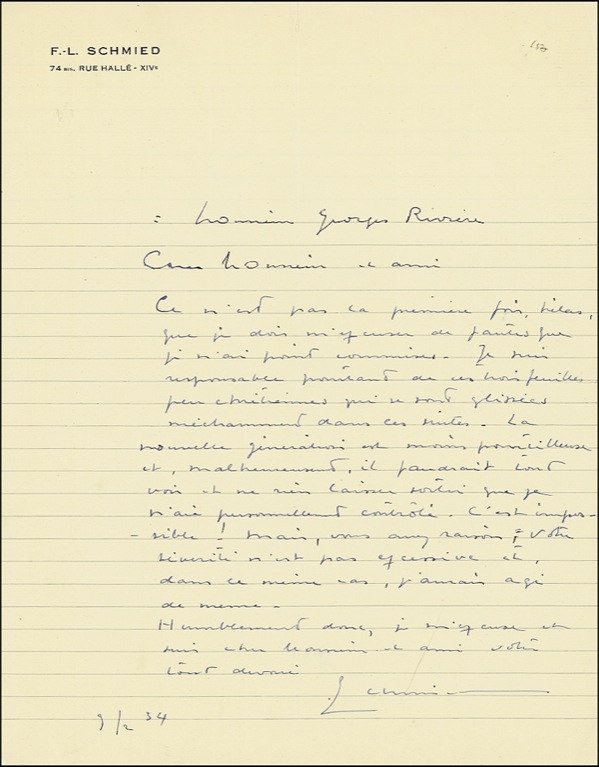 F.-L. SCHMIED
74 BIS, RUE HALLÉ - XIVe
= Monsieur Georges Rivière
Cher Monsieur et ami
Ce n'est pas la première fois, hélas,
que je dois m'excuser de fautes que
je n'ai point commises. Je suis
responsable pourtant de ces trois feuilles
peu chrétiennes qui se sont glissées
méchamment dans ces suites. La
nouvelle génération est moins pointilleuse
et, malheureusement, il faudrait tout
voir et ne rien laisser sortir que je
n'aie personnellement contrôlé. C'est impos-
-sible ! Mais, vous avez raison ; votre
sévérité n'est pas excessive et,
dans ce même cas, j'aurais agi
de même.
Humblement donc, je m'excuse et
suis cher Monsieur et ami votre
tout dévoué
Schmied
9/2 34